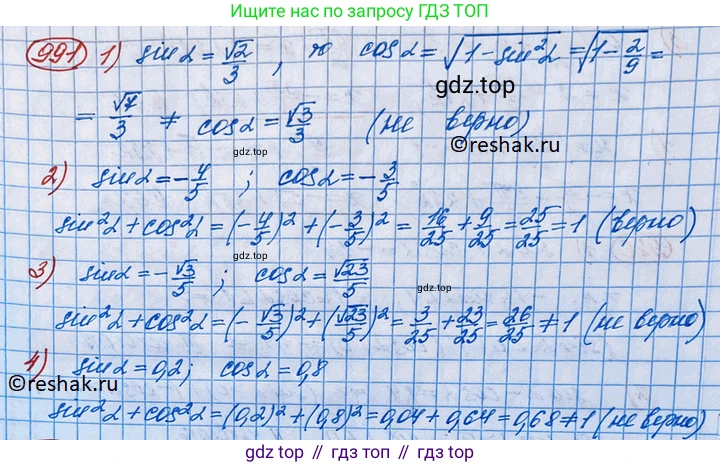 Ищите нас по запросу ГДЗ ТОП
991 1) sin α = √2/3, то cos α = √(1 - sin²α) = √(1 - 2/9) =
gdz.top
= √7/3 ≠ cos α = √3/3 (не верно)
©reshak.ru
2) sin α = -4/5 ; cos α = -3/5
gdz.top
sin²α + cos²α = (-4/5)² + (-3/5)² = 16/25 + 9/25 = 25/25 = 1 (верно)
3) sin α = -√3/5 ; cos α = √23/5
gdz.top
sin²α + cos²α = (-√3/5)² + (√23/5)² = 3/25 + 23/25 = 26/25 ≠ 1 (не верно)
4) sin α = 0,2; cos α = 0,8
©reshak.ru
sin²α + cos²α = (0,2)² + (0,8)² = 0,04 + 0,64 = 0,68 ≠ 1 (не верно)
gdz.top // гдз.топ // гдз топ